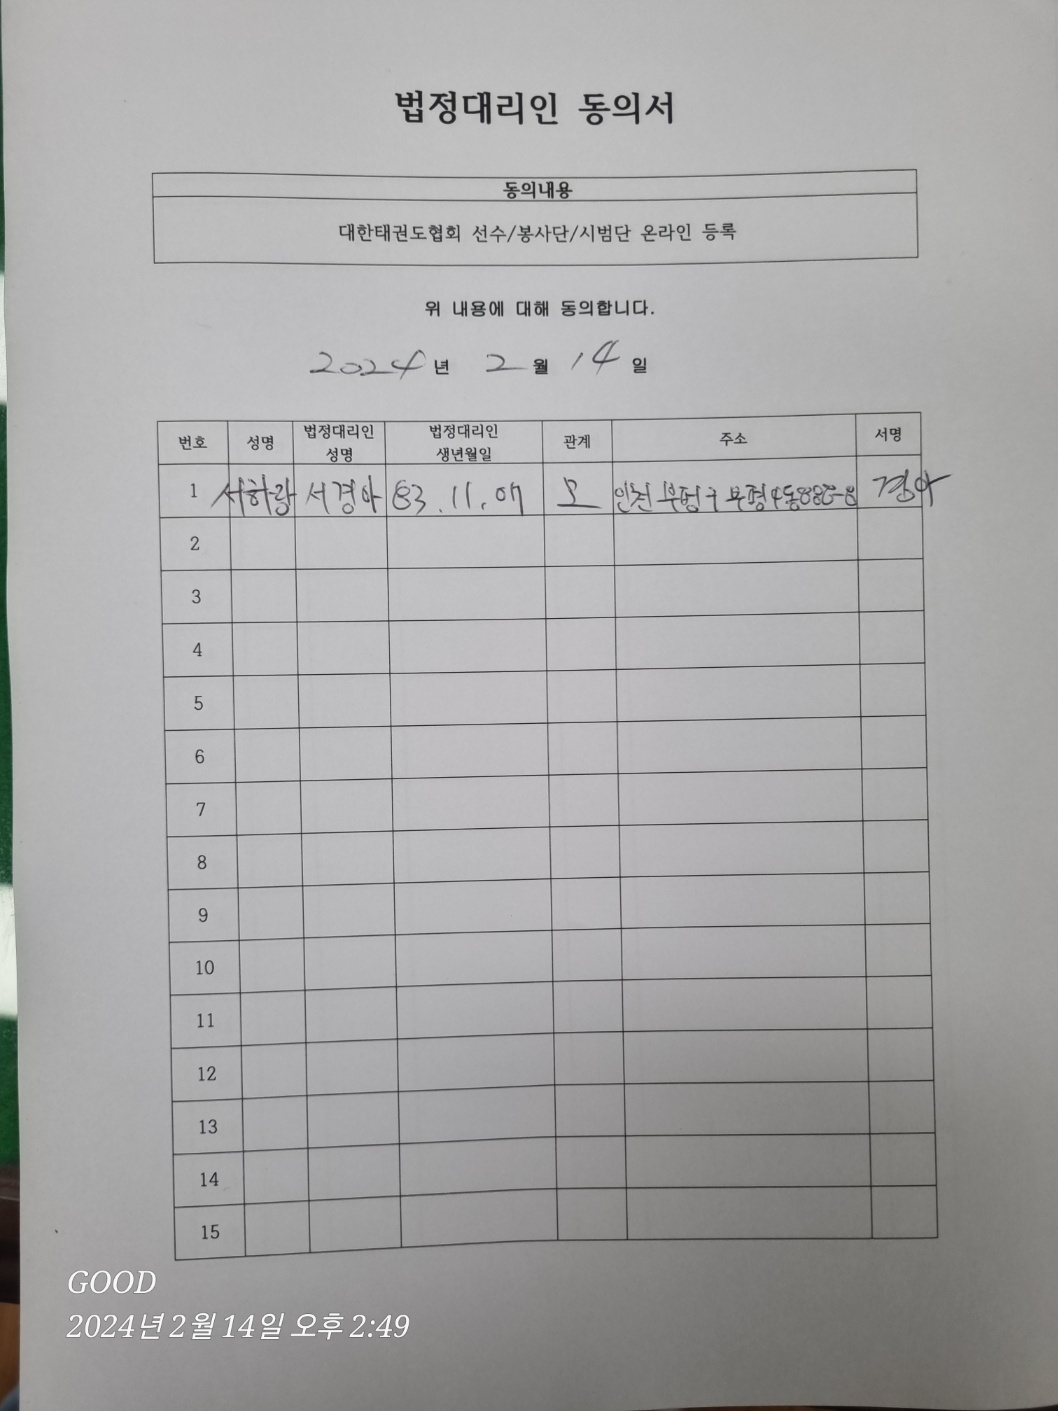 법정대리인 동의서
동의내용
대한태권도협회 선수/봉사단/시범단 온라인 등록
위 내용에 대해 동의합니다.
2024년 2월 14일
번호 성명 법정대리인 성명 법정대리인 생년월일 관계 주소 서명
1 서하랑 서경아 83.11.07 모 인천 부평구 부평4동 경아
2
3
4
5
6
7
8
9
10
11
12
13
14
15
GOOD
2024년 2월 14일 오후 2:49